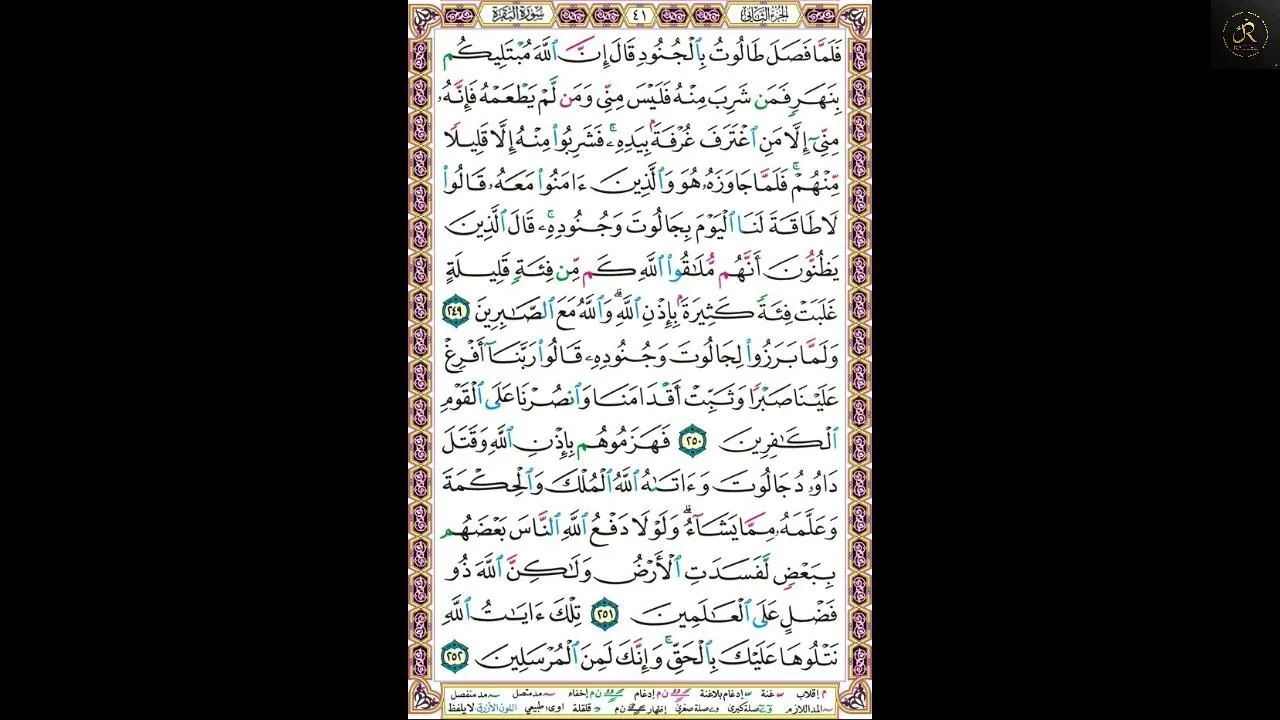 الجزء الثاني ٤١ سورة البقرة
فَلَمَّا فَصَلَ طَالُوتُ بِٱلْجُنُودِ قَالَ إِنَّ ٱللَّهَ مُبْتَلِيكُم
بِنَهَرٍ فَمَن شَرِبَ مِنْهُ فَلَيْسَ مِنِّى وَمَن لَّمْ يَطْعَمْهُ فَإِنَّهُۥ
مِنِّىٓ إِلَّا مَنِ ٱغْتَرَفَ غُرْفَةًۢ بِيَدِهِۦ ۚ فَشَرِبُوا۟ مِنْهُ إِلَّا قَلِيلًا
مِّنْهُمْ ۚ فَلَمَّا جَاوَزَهُۥ هُوَ وَٱلَّذِينَ ءَامَنُوا۟ مَعَهُۥ قَالُوا۟
لَا طَاقَةَ لَنَا ٱلْيَوْمَ بِجَالُوتَ وَجُنُودِهِۦ ۚ قَالَ ٱلَّذِينَ
يَظُنُّونَ أَنَّهُم مُّلَـٰقُوا۟ ٱللَّهِ كَم مِّن فِئَةٍ قَلِيلَةٍ
غَلَبَتْ فِئَةً كَثِيرَةًۢ بِإِذْنِ ٱللَّهِ ۗ وَٱللَّهُ مَعَ ٱلصَّـٰبِرِينَ ٢٤٩
وَلَمَّا بَرَزُوا۟ لِجَالُوتَ وَجُنُودِهِۦ قَالُوا۟ رَبَّنَآ أَفْرِغْ
عَلَيْنَا صَبْرًا وَثَبِّتْ أَقْدَامَنَا وَٱنصُرْنَا عَلَى ٱلْقَوْمِ
ٱلْكَـٰفِرِينَ ٢٥٠ فَهَزَمُوهُم بِإِذْنِ ٱللَّهِ وَقَتَلَ
دَاوُۥدُ جَالُوتَ وَءَاتَىٰهُ ٱللَّهُ ٱلْمُلْكَ وَٱلْحِكْمَةَ
وَعَلَّمَهُۥ مِمَّا يَشَآءُ ۗ وَلَوْلَا دَفْعُ ٱللَّهِ ٱلنَّاسَ بَعْضَهُم
بِبَعْضٍ لَّفَسَدَتِ ٱلْأَرْضُ وَلَـٰكِنَّ ٱللَّهَ ذُو
فَضْلٍ عَلَى ٱلْعَـٰلَمِينَ ٢٥١ تِلْكَ ءَايَـٰتُ ٱللَّهِ
نَتْلُوهَا عَلَيْكَ بِٱلْحَقِّ ۚ وَإِنَّكَ لَمِنَ ٱلْمُرْسَلِينَ ٢٥٢
م إقلاب غنة إدغام بلاغنة ن م إدغام ن م إخفاء مد متصل مد منفصل
المد اللازم صلة كبرى صلة صغرى إظهار ن م قلقلة اوى طبيعي اللون الأزرق لا يلفظ